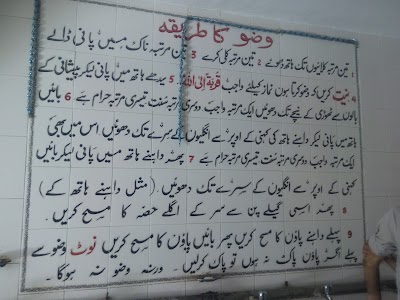 وضو کا طریقہ
1 تین مرتبہ کلائیوں تک ہاتھ دھوے 2 تین مرتبہ کلی کرے 3 تین مرتبہ ناک میں پانی ڈالے
4 نیت کریں کہ وضو کرتا ہوں نماز کیلئے واجب قربۃ الی اللہ 5 سیدھے ہاتھ میں پانی لیکر پیشانی کے
بالوں سے ٹھوڑی کے نیچے تک دھوئیں ایک مرتبہ واجب دوسری مرتبہ سنت تیسری مرتبہ حرام ہے 6 بائیں
ہاتھ میں پانی لیکر داہنے ہاتھ کی کہنی کے اوپر سے انگلیوں کے سرے تک دھوئیں اس میں بھی
ایک مرتبہ واجب دوسری مرتبہ سنت تیسری مرتبہ حرام ہے 7 پھر داہنے ہاتھ میں پانی لیکر بائیں
کہنی کے اوپر سے انگلیوں کے سرے تک دھوئیں (مثل داہنے ہاتھ کے)
8 پھر اسی گیلے پن سے سر کے اگلے حصہ کا مسح کریں۔
9 پہلے داہنے پاؤں کا مسح کریں پھر بائیں پاؤں کا مسح کریں نوٹ وضو سے
پہلے اگر پاؤں پاک نہ ہوں تو پاک کرلیں۔ ورنہ وضو نہ ہوگا۔